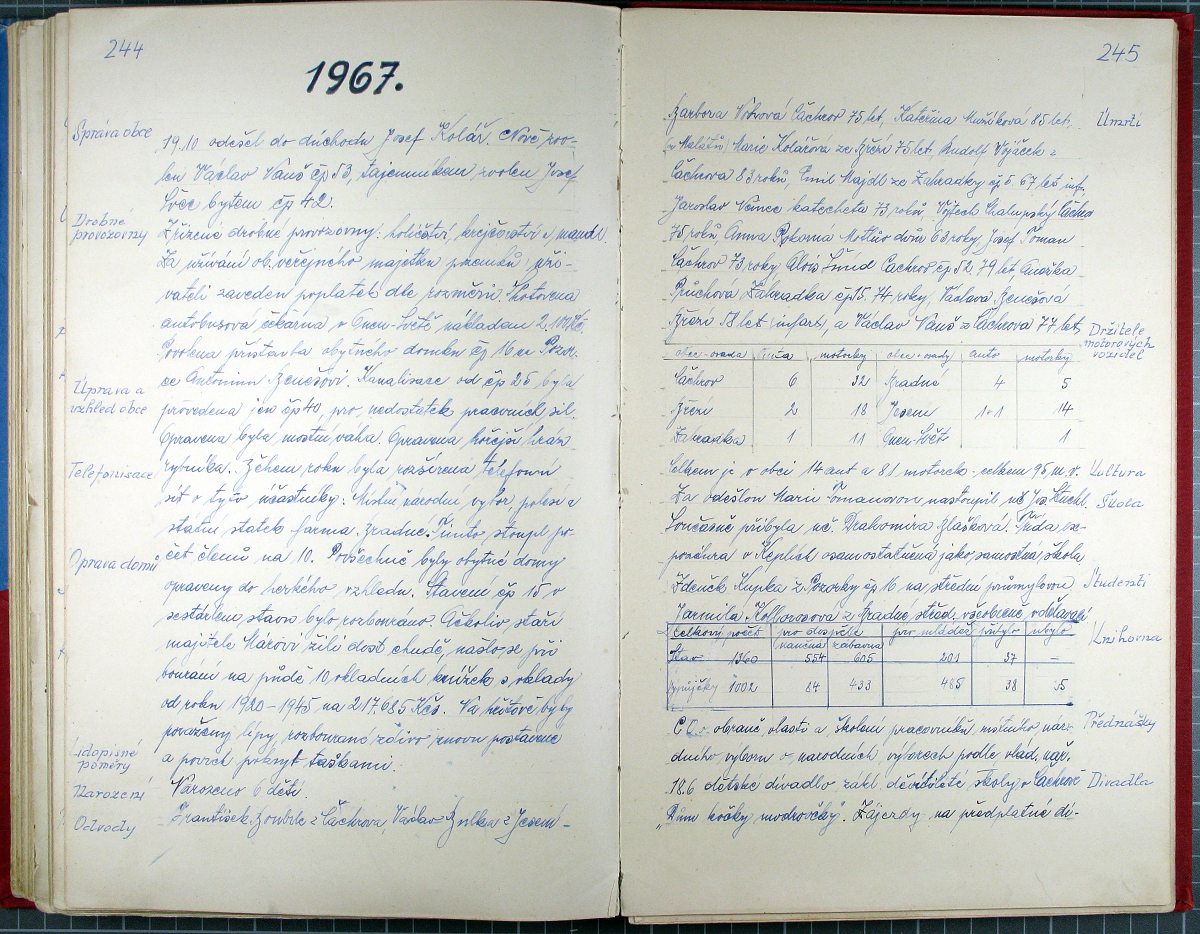 244
1967.
Správa obce
19.10 odešel do důchodu Josef Kolář. Nově zvo-
len Václav Vaněš čp 53, tajemníkem, zvolen Josef
bytem čp 42.
Drobné
provozovny
Zřízené drobné provozovny: holičství, krejčovství i mandl.
Za užívání ob. veřejného majetku pozemků, uži-
vateli zaveden poplatek dle rozměrů. Zhotovena
autobusová čekárna v nákladem
Povolena přístavba obytného domku čp 16 na Pozor-
ce Antonínu Benešovi. Kanalisace od čp 25 byla
Úprava a
vzhled obce
provedena jen čp 40, pro nedostatek pracovních sil.
Opravena byla mostní váha. Opravena hořejší hráz
rybníka. Během roku byla rozšířena telefonní
Telefonisace
síť o tyto účastníky: Místní národní výbor, polesí a
statní statek farma Kradné. Tímto stoupl po-
čet členů na 10. Povšechně byly obytné domy
Oprava domů
opraveny do hezkého vzhledu. Stavení čp 15 v
sestárlém stavu bylo rozbouráno. Ačkoliv staří
majitelé žili dost chudě, našlo se při
bourání na půdě 10 vkladních knížek s vklady
od roku 1920-1945 na 217.685 Kčs.
považeny lípy rozbourané zdivo znovu postavené
a povrch pokryt taškami.
Lidopisné
poměry
Narození
Narozeno 6 dětí.
Odvody
František Bouble z Čachrova, Václav z Jesení-
245
Barbora Čachrov 75 let, Kateřina 85 let,
Marie Kolářová ze Březí 75 let, Rudolf Vojáček z
Úmrtí
Čachrova 83 roků, Emil Majdl ze Zahrádky čp 5 67 let inf.
Jaroslav katecheta 73 roků, Vojtěch Chalupský Čachrov
75 roků Anna Pokorná dvůr 63 roky, Josef Toman
Čachrov 73 roky, Alois Šmíd Čachrov čp 52 79 let Anežka
Průchová Zahrádka čp 15. 74 roky, Václava Benešová
Březí 58 let (infart), a Václav Vaněš z Čachrova 77 let
Držitelé
motorových
vozidel
obec-osada auta motorky obec-osady auto motorky
Čachrov 6 32 Kradné 4 5
Březí 2 18 Jesení 1+1 14
Zahrádka 1 11 1
Celkem je v obci 14 aut a 81 motorek - celkem 95 m. v.
Kultura
Za odešlou Marii Tomanovou nastoupil uč Jos. Stuchl.
Škola
Současně přibyla uč. Drahomíra Blašková. Třída ex-
positura v Keplích osamostatněna jako samostná škola
Zdeněk Kupka z Pozorky čp 16 na střední průmyslovou
Studenti
Jarmila z Kradné, střed. všeobecně vzdělávací
Celkový počet pro dospělé pro mládež přibylo ubylo
naučná zábavná
Knihovna
Stav 1360 554 605 201 37 -
Výpůjčky 1002 84 433 485 38 35
o obraně vlasti a školení pracovníků místního náro-
Přednášky
dního výboru o národních výborech podle vlad. nař.
18.6 dětské divadlo zákl. devítileté školy v Čachrově
Divadla
"Dům kočky modroočky". Zájezdy na předplatné di-